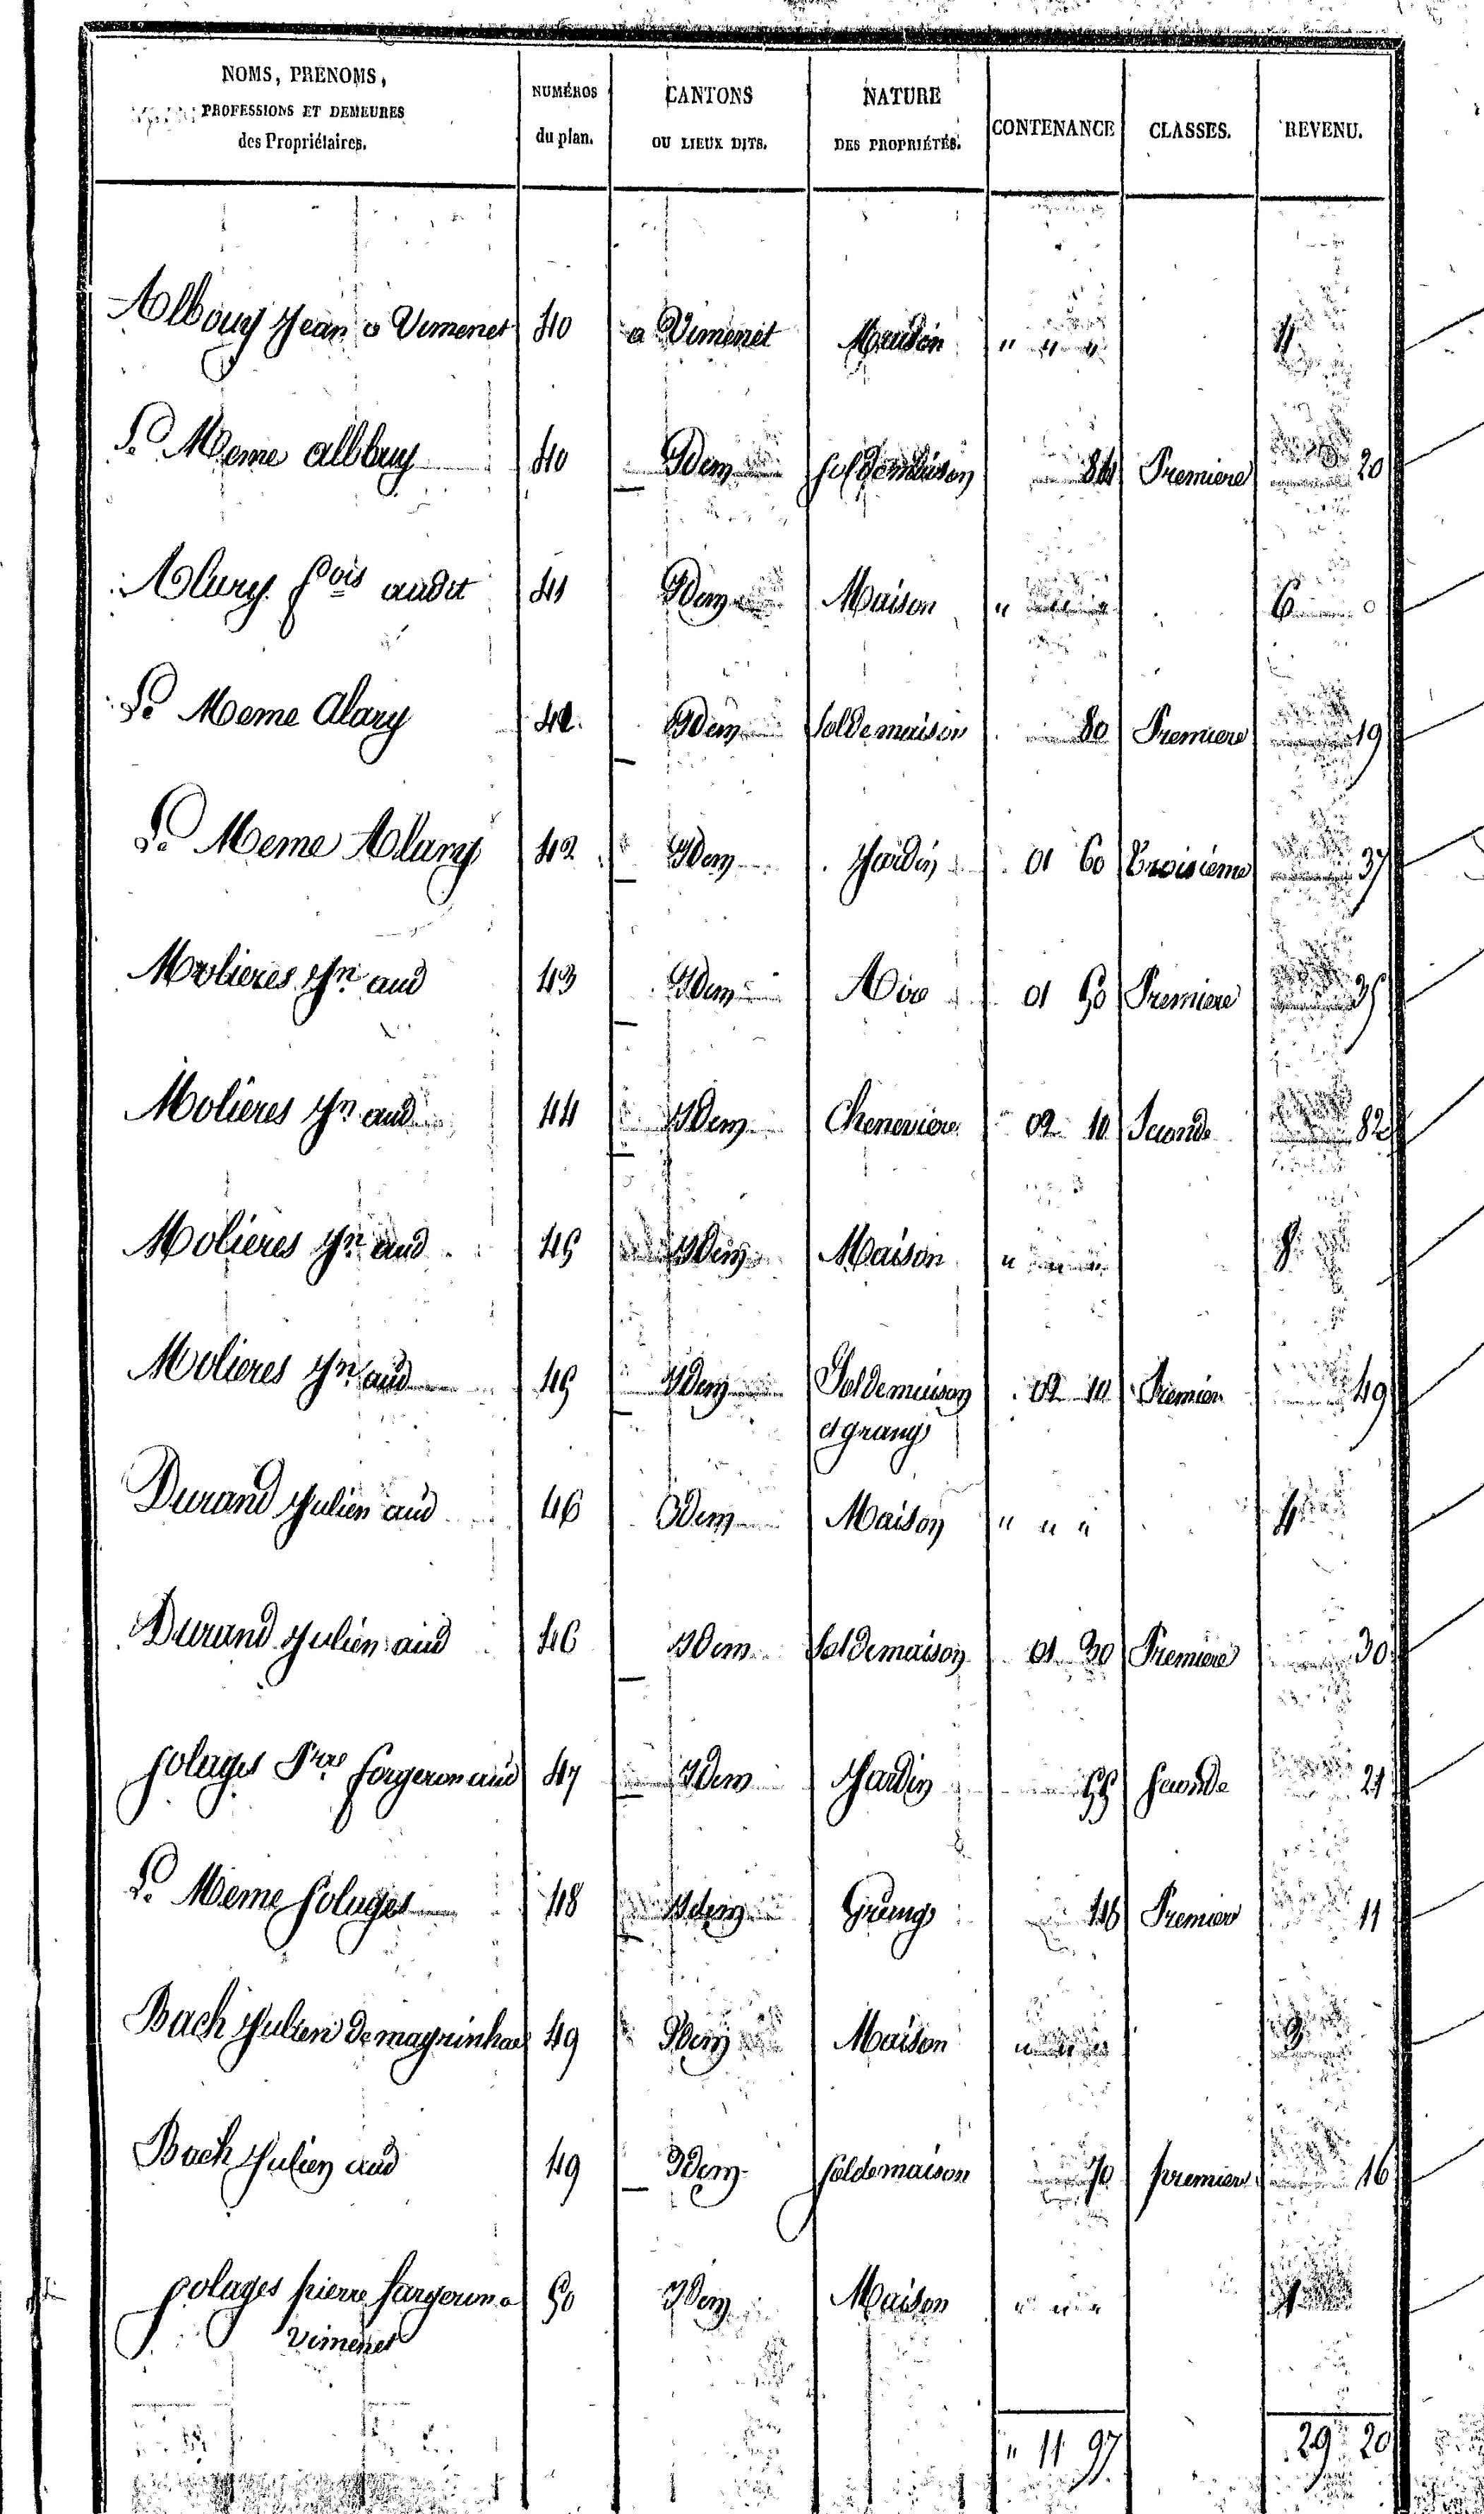 NOMS, PRÉNOMS, PROFESSIONS ET DEMEURES des Propriétaires. NUMÉROS du plan. CANTONS OU LIEUX DITS. NATURE DES PROPRIÉTÉS. CONTENANCE CLASSES. REVENU.
Albouy Jean a Vimenet 40 a Vimenet Maison " " " 4
Le Meme albouy 40 Idem sol de maison 84 Premiere 20
Alary fois audit 41 Idem Maison " " " 6
Le Meme Alary 41 Idem sol de maison 80 Premiere 19
Le Meme Alary 42 Idem Jardin 01 60 Troisieme 37
Molieres Jn aud 43 Idem Aire 01 50 Premiere 35
Molieres Jn aud 44 Idem Cheneviere 02 10 Seconde 82
Molieres Jn aud 45 Idem Maison " " "
Molieres Jn aud 45 Idem Sol de maison 02 10 Premiere 49
et grange
Durand Julien aud 46 Idem Maison " " " 4
Durand Julien aud 46 Idem Sol de maison 01 30 Premiere 30
solages Pre forgeron aud 47 Idem Jardin 55 seconde 21
Le Meme solages 48 Idem Grange 48 Premiere 11
Bach Julien de mayrinhac 49 Idem Maison " " "
Bach Julien aud 49 Idem sol de maison 70 premiere 16
solages pierre forgeron a 50 Idem Maison " " "
Vimenet
" 11 97 29 20